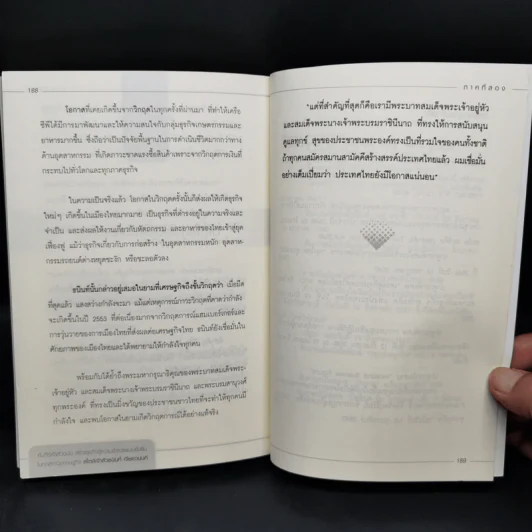 188
โอกาสที่เคยเกิดขึ้นจากวิกฤตในทุกครั้งที่ผ่านมา ที่ทำให้เครือ
ซีพีได้มีการมาพัฒนาและให้ความสนใจกับกลุ่มธุรกิจเกษตรกรรมและ
อาหารมากขึ้น ซึ่งถือว่าเป็นปัจจัยพื้นฐานในการดำเนินชีวิตมากกว่าทาง
ด้านอุตสาหกรรม ที่เกิดภาวะขาดแรงซื้อสินค้าเพราะจากวิกฤตการเงินที่
กระทบไปทั่วโลกและทุกภาคธุรกิจ
ในความเป็นจริงแล้ว โอกาสในวิกฤตครั้งนั้นก็ส่งผลให้เกิดธุรกิจ
ใหม่ๆ เกิดขึ้นในเมืองไทยมากมาย เป็นธุรกิจที่ดำรงอยู่ในความจริงและ
จำเป็น และส่งผลให้งานเกี่ยวกับหัตถกรรม และอาหารของไทยเข้าสู่ยุค
เฟื่องฟู แม้ว่าธุรกิจเกี่ยวกับการก่อสร้าง ในอุตสาหกรรมหนัก อุตสาห-
กรรมรถยนต์ต่างหยุดชะงัก หรือชะลอตัวลง
ธนินท์นั้นกล่าวอยู่เสมอในยามที่เศรษฐกิจถึงขั้นวิกฤตว่า เมื่อมืด
ที่สุดแล้ว แสงสว่างกำลังจะมา แม้แต่เหตุการณ์ภาวะวิกฤตที่คาดว่ากำลัง
จะเกิดขึ้นในปี 2553 ที่ต่อเนื่องมาจากวิกฤตการณ์แฮมเบอร์เกอร์และ
การวุ่นวายของการเมืองไทยที่ส่งผลต่อเศรษฐกิจไทย ธนินท์ก็ยังเชื่อมั่นใน
ศักยภาพของเมืองไทยและได้พยายามให้กำลังใจทุกคน
พร้อมกับได้ย้ำถึงพระมหากรุณาธิคุณของพระบาทสมเด็จพระ-
เจ้าอยู่หัว และสมเด็จพระนางเจ้าพระบรมราชินีนาถ และพระบรมศานุวงศ์
ทุกพระองค์ ที่ทรงเป็นมิ่งขวัญของประชาชนชาวไทยที่จะทำให้ทุกคนมี
กำลังใจ และพบโอกาสในยามเกิดวิกฤตการณ์ได้อย่างแท้จริง
ภาคที่สอง
"แต่ที่สำคัญที่สุดก็คือเรามีพระบาทสมเด็จพระเจ้าอยู่หัว
และสมเด็จพระนางเจ้าพระบรมราชินีนาถ ที่ทรงให้การสนับสนุน
ดูแลทุกข์ สุขของประชาชนพระองค์ทรงเป็นที่รวมใจของคนทั้งชาติ
ถ้าทุกคนสมัครสมานสามัคคีสร้างสรรค์ประเทศไทยแล้ว ผมเชื่อมั่น
อย่างเต็มเปี่ยมว่า ประเทศไทยยังมีโอกาสแน่นอน"
189